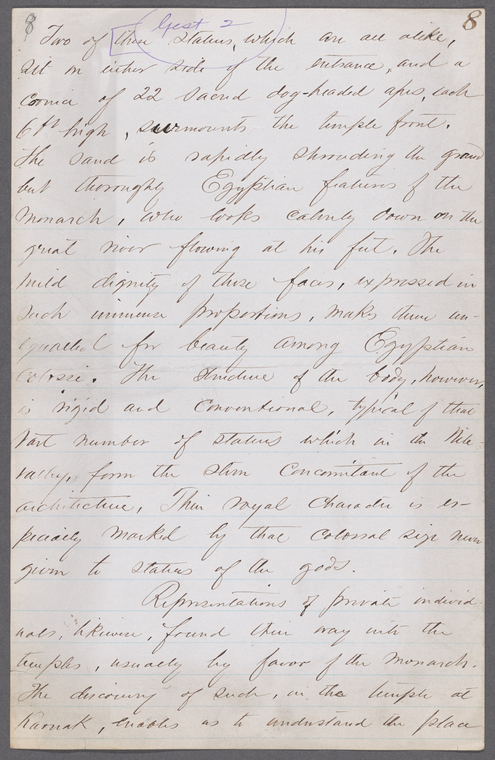 8 8
Gest 2
Two of these statues, which are all alike,
sit on either side of the entrance, and a
cornice of 22 sacred dog-headed apes, each
6 ft high, surmounts the temple front.
The sand is rapidly shrouding the grand
but thoroughly Egyptian features of the
Monarch, who looks calmly down on the
great river flowing at his feet. The
mild dignity of these faces, expressed in
such immense proportions, makes them un-
equalled for beauty among Egyptian
Colossi. The structure of the body, however,
is rigid and conventional, typical of that
vast number of statues which in the Nile-
valley, form the stern concomitant of the
architecture, Their royal character is es-
pecially marked by that colossal size never
given to statues of the gods.
Representations of private individ-
uals, likewise, found their way into the
temples, usually by favor of the Monarch.
The discovery of such, in the temple at
Karnak, enables us to understand the place